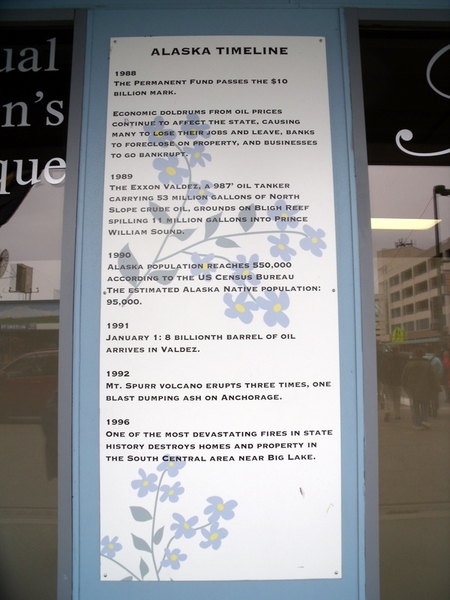 ual
n's
que
ALASKA TIMELINE
1988
THE PERMANENT FUND PASSES THE $10
BILLION MARK.
ECONOMIC DOLDRUMS FROM OIL PRICES
CONTINUE TO AFFECT THE STATE, CAUSING
MANY TO LOSE THEIR JOBS AND LEAVE, BANKS
TO FORECLOSE ON PROPERTY, AND BUSINESSES
TO GO BANKRUPT.
1989
THE EXXON VALDEZ, A 987' OIL TANKER
CARRYING 53 MILLION GALLONS OF NORTH
SLOPE CRUDE OIL, GROUNDS ON BLIGH REEF
SPILLING 11 MILLION GALLONS INTO PRINCE
WILLIAM SOUND.
1990
ALASKA POPULATION REACHES 550,000
ACCORDING TO THE US CENSUS BUREAU
THE ESTIMATED ALASKA NATIVE POPULATION:
95,000.
1991
JANUARY 1: 8 BILLIONTH BARREL OF OIL
ARRIVES IN VALDEZ.
1992
MT. SPURR VOLCANO ERUPTS THREE TIMES, ONE
BLAST DUMPING ASH ON ANCHORAGE.
1996
ONE OF THE MOST DEVASTATING FIRES IN STATE
HISTORY DESTROYS HOMES AND PROPERTY IN
THE SOUTH CENTRAL AREA NEAR BIG LAKE.